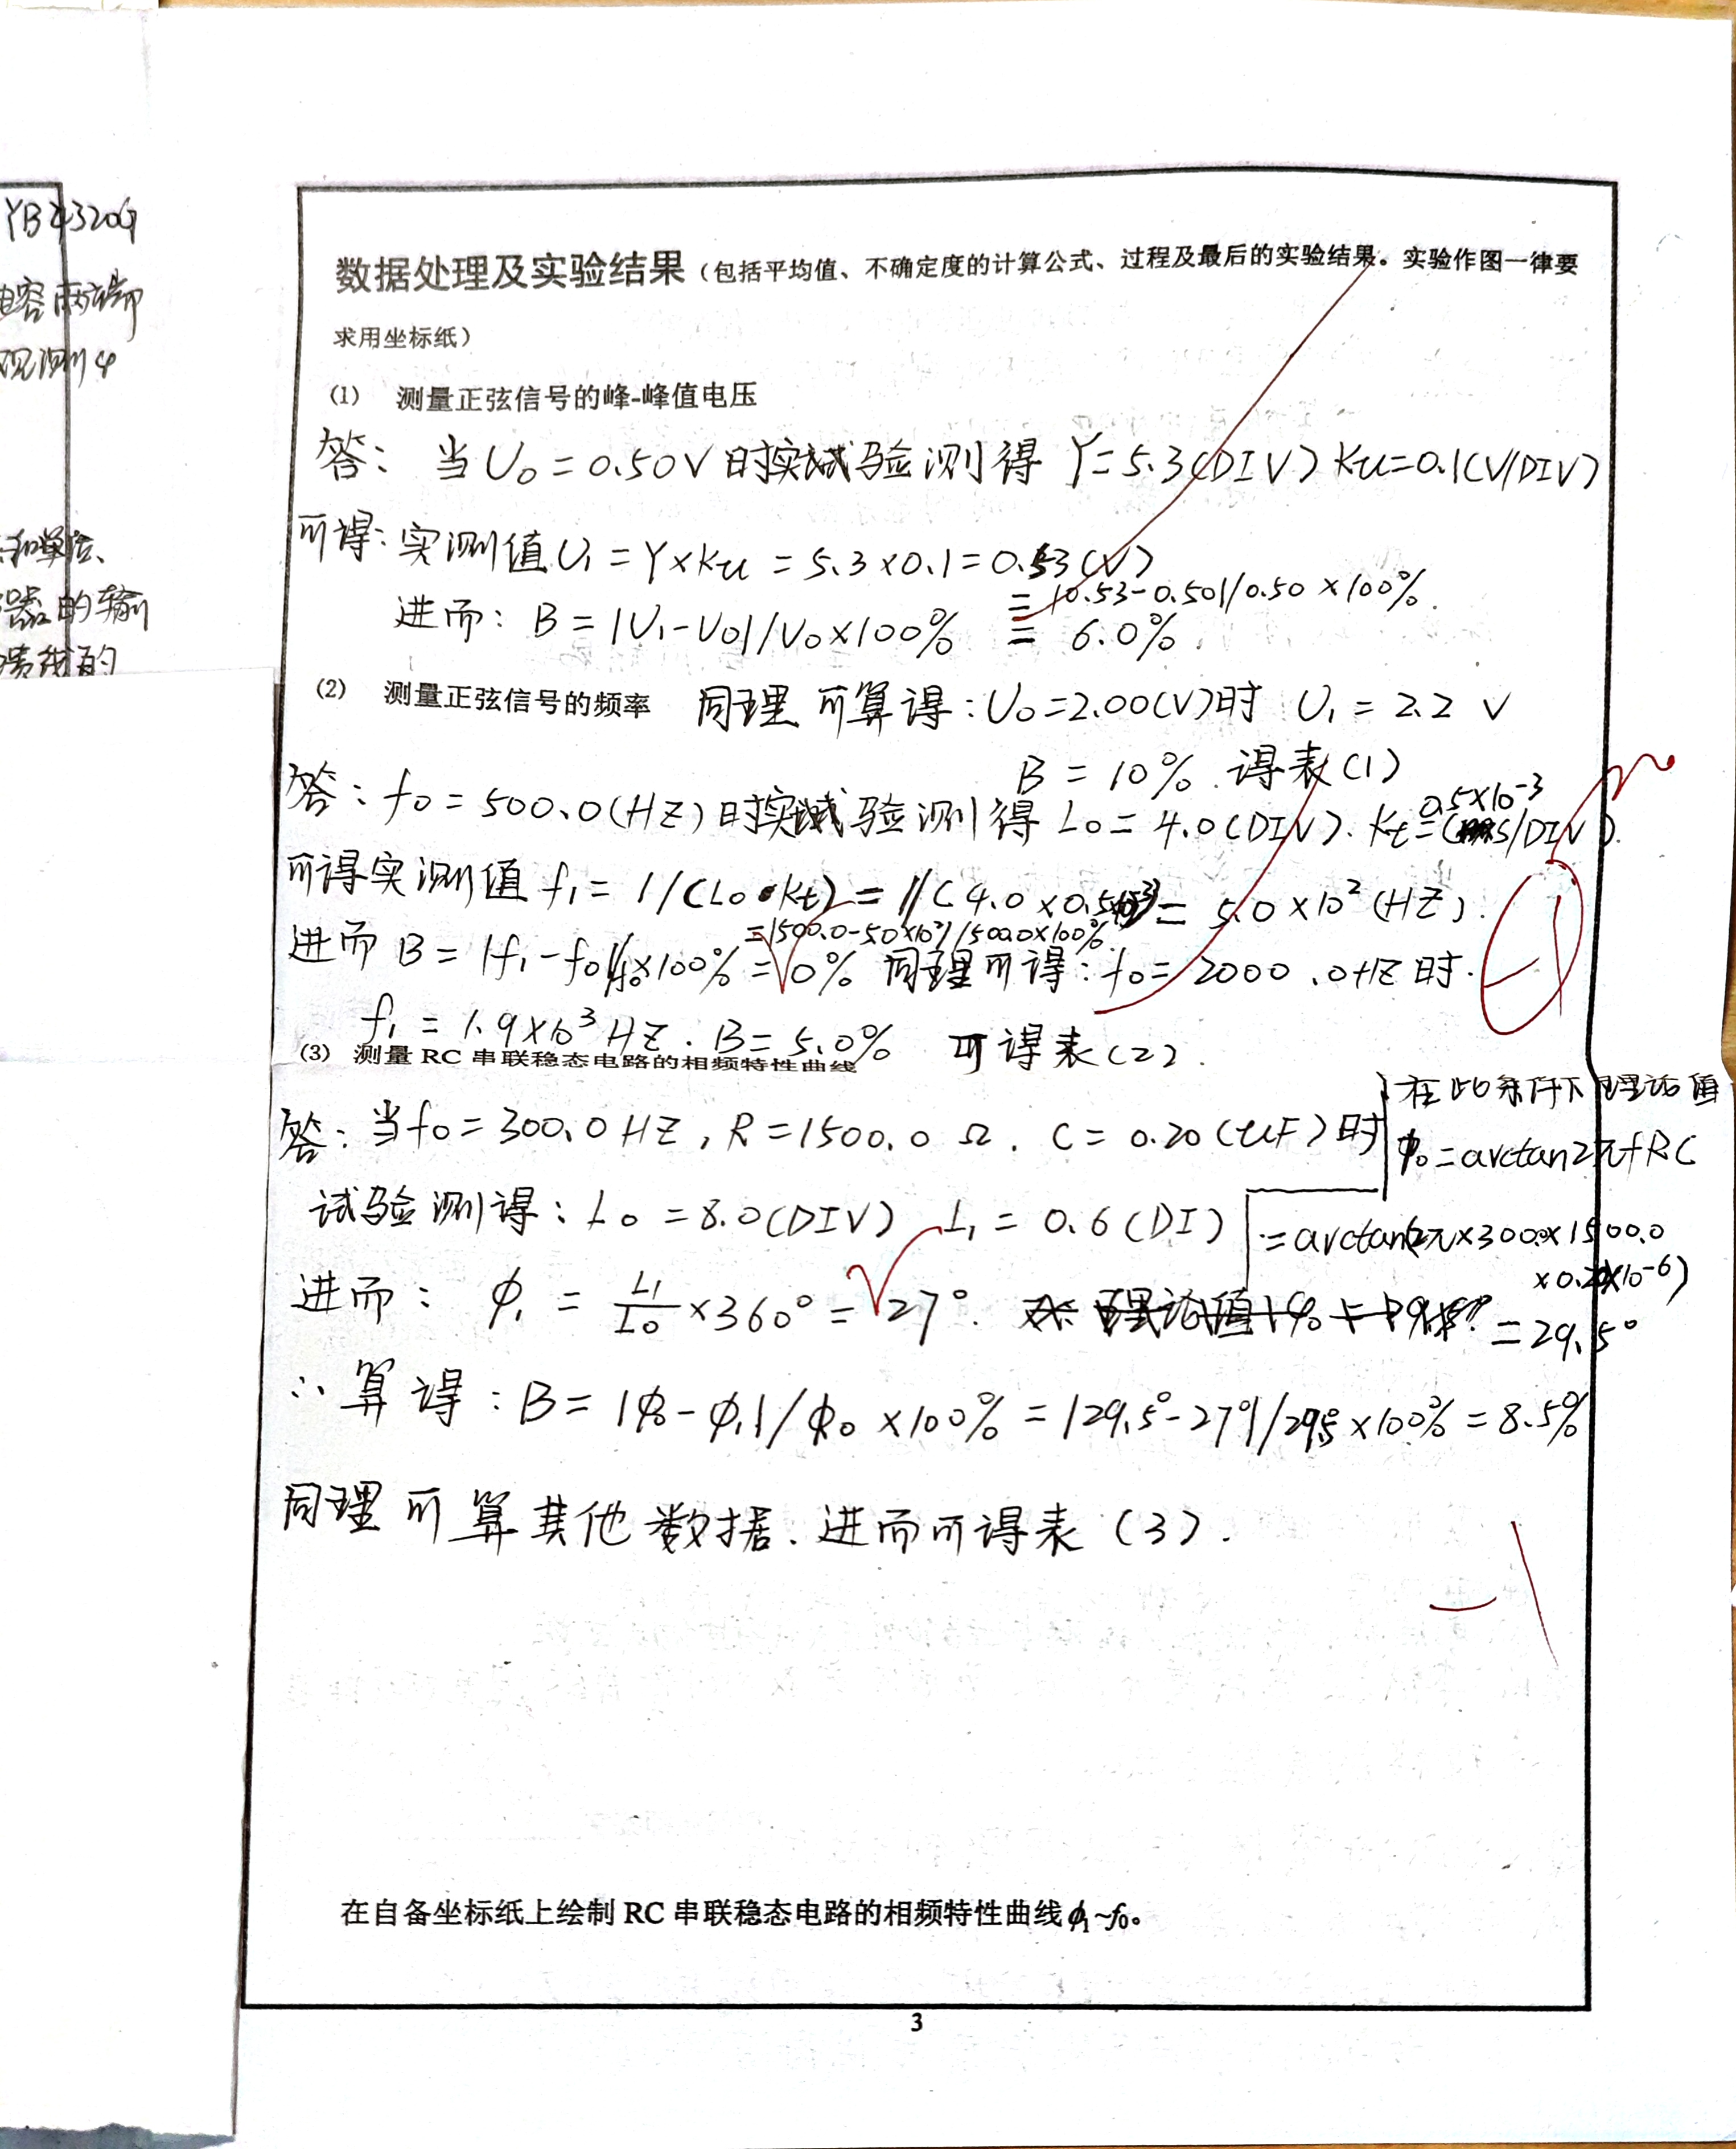 YB4320G
电容两端
观测φ
和单位、
器的输
数据处理及实验结果（包括平均值、不确定度的计算公式、过程及最后的实验结果。实验作图一律要
求用坐标纸）
(1) 测量正弦信号的峰-峰值电压
答: 当U₀=0.50V时实试验测得 Y=5.3(DIV) Ku=0.1(V/DIV)
可得:实测值U₁=Y×Ku=5.3×0.1=0.53(V)
=|0.53-0.50|/0.50×100%.
进而: B=|U₁-U₀|/U₀×100% = 6.0%.
(2) 测量正弦信号的频率 同理可算得:U₀=2.00(V)时 U₁=2.2 V
B=10%. 得表(1)
答: f₀=500.0(HZ)时实试验测得 L₀=4.0(DIV). Kt=0.5×10⁻³(s/DIV).
可得实测值 f₁=1/(L₀•Kt)=1/(4.0×0.5×10⁻³)=5.0×10²(HZ).
=|500.0-5.0×10²|/500.0×100%
进而 B=|f₁-f₀|/f₀×100%=0% 同理可得: f₀=2000.0HZ时.
f₁=1.9×10³HZ. B=5.0% 可得表(2).
(3) 测量 RC 串联稳态电路的相频特性曲线
答: 当f₀=300.0HZ, R=1500.0Ω. C=0.20(uF)时
在此条件下理论值
φ₀=arctan2πfRC
=arctan(2π×300.0×1500.0
×0.20×10⁻⁶)
=29.5°
试验测得: L₀=8.0(DIV) L₁=0.6(DI)
进而: φ₁=L₁/L₀×360°=27°.
∴算得: B=|φ₀-φ₁|/φ₀×100%=|29.5°-27°|/29.5×100%=8.5%
同理可算其他数据.进而可得表(3).
-1
-1
在自备坐标纸上绘制 RC 串联稳态电路的相频特性曲线φ₁~f₀。
3